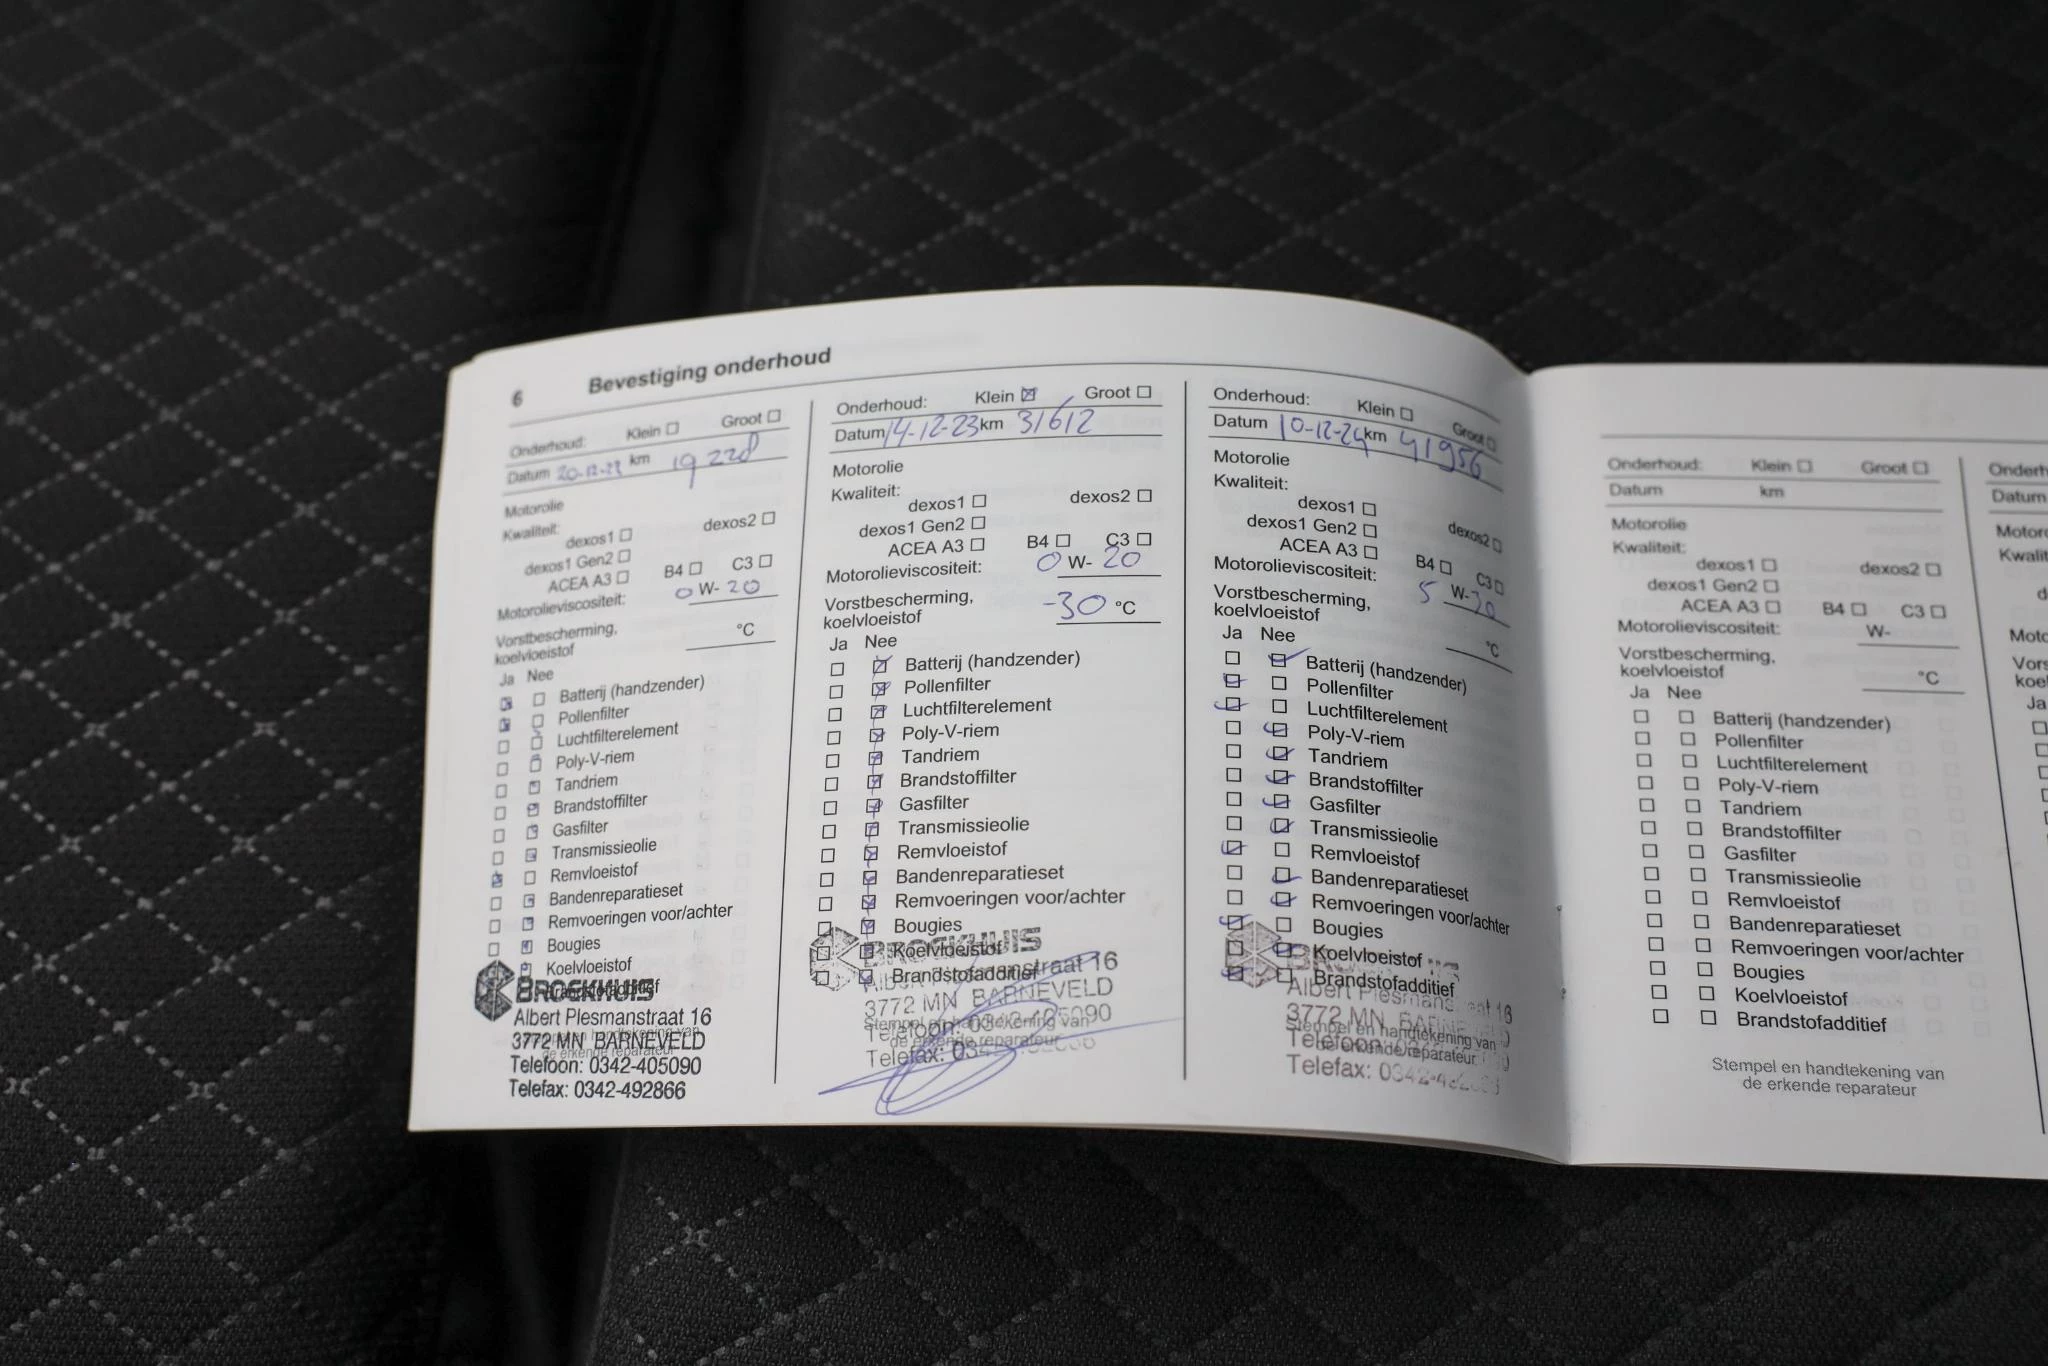 6 Bevestiging onderhoud
Onderhoud: Klein ☐ Groot ☐
Datum 20-12-22 km 19228
Motorolie
Kwaliteit:
dexos1 ☐ dexos2 ☐
dexos1 Gen2 ☐
ACEA A3 ☐ B4 ☐ C3 ☐
Motorolieviscositeit: 0 W- 20
Vorstbescherming,
koelvloeistof °C
Ja Nee
Batterij (handzender)
Pollenfilter
Luchtfilterelement
Poly-V-riem
Tandriem
Brandstoffilter
Gasfilter
Transmissieolie
Remvloeistof
Bandenreparatieset
Remvoeringen voor/achter
Bougies
Koelvloeistof
Brandstofadditief
BROEKHUIS
Albert Plesmanstraat 16
3772 MN BARNEVELD
Telefoon: 0342-405090
Telefax: 0342-492866
Stempel en handtekening van
de erkende reparateur
Onderhoud: Klein ☒ Groot ☐
Datum 14-12-23 km 31612
Motorolie
Kwaliteit:
dexos1 ☐ dexos2 ☐
dexos1 Gen2 ☐
ACEA A3 ☐ B4 ☐ C3 ☐
Motorolieviscositeit: 0 W- 20
Vorstbescherming,
koelvloeistof -30 °C
Ja Nee
Batterij (handzender)
Pollenfilter
Luchtfilterelement
Poly-V-riem
Tandriem
Brandstoffilter
Gasfilter
Transmissieolie
Remvloeistof
Bandenreparatieset
Remvoeringen voor/achter
Bougies
Koelvloeistof
Brandstofadditief
BROEKHUIS
Albert Plesmanstraat 16
3772 MN BARNEVELD
Telefoon: 0342-405090
Telefax: 0342-492866
Stempel en handtekening van
de erkende reparateur
Onderhoud: Klein ☐ Groot ☐
Datum 10-12-24 km 41956
Motorolie
Kwaliteit:
dexos1 ☐ dexos2 ☐
dexos1 Gen2 ☐
ACEA A3 ☐ B4 ☐ C3 ☐
Motorolieviscositeit: 5 W- 30
Vorstbescherming,
koelvloeistof °C
Ja Nee
Batterij (handzender)
Pollenfilter
Luchtfilterelement
Poly-V-riem
Tandriem
Brandstoffilter
Gasfilter
Transmissieolie
Remvloeistof
Bandenreparatieset
Remvoeringen voor/achter
Bougies
Koelvloeistof
Brandstofadditief
Albert Plesmanstraat 16
3772 MN
Telefoon:
Telefax:
Stempel en handtekening van
de erkende reparateur
Onderhoud: Klein ☐ Groot ☐
Datum km
Motorolie
Kwaliteit:
dexos1 ☐ dexos2 ☐
dexos1 Gen2 ☐
ACEA A3 ☐ B4 ☐ C3 ☐
Motorolieviscositeit: W-
Vorstbescherming,
koelvloeistof °C
Ja Nee
Batterij (handzender)
Pollenfilter
Luchtfilterelement
Poly-V-riem
Tandriem
Brandstoffilter
Gasfilter
Transmissieolie
Remvloeistof
Bandenreparatieset
Remvoeringen voor/achter
Bougies
Koelvloeistof
Brandstofadditief
Stempel en handtekening van
de erkende reparateur
Datum
Ja